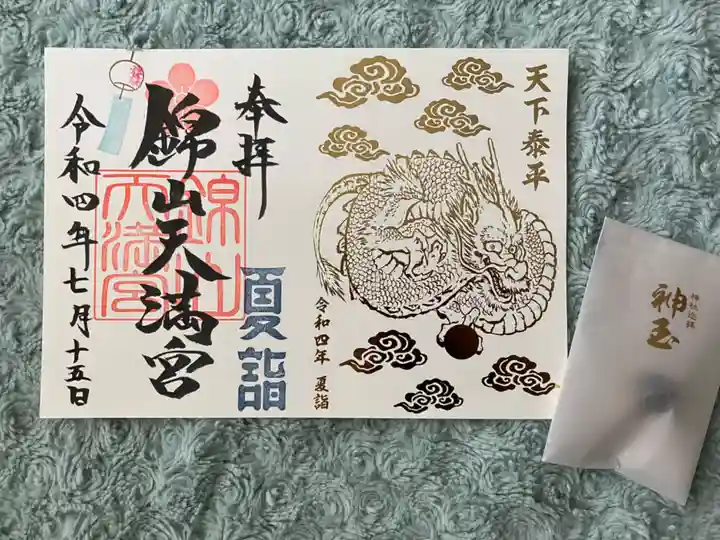 天下泰平
令和四年 夏詣
奉拝
夏詣
錦山天満宮
錦山
天満宮
令和四年七月十五日
神社巡拝
神玉